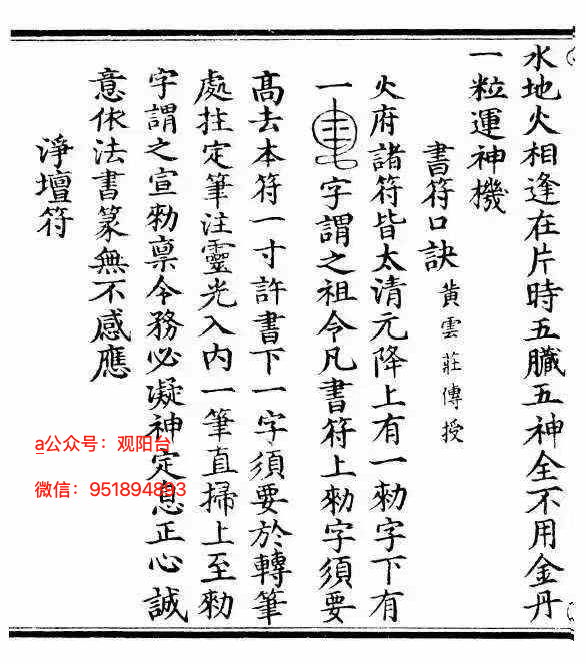 水地火相逢在片時五臟五神全不用金丹
一粒運神機
書符口訣 黄雲莊傳授
火府諸符皆太清元降上有一勑字下有
一字謂之祖令凡書符上勑字須要
高去本符一寸許書下一字須要於轉筆
處拄定筆注靈光入内一筆直掃上至勑
字謂之宣勑禀令務必凝神定息正心誠
意依法書篆無不感應
淨壇符
a公众号：观阳台
微信：951894893